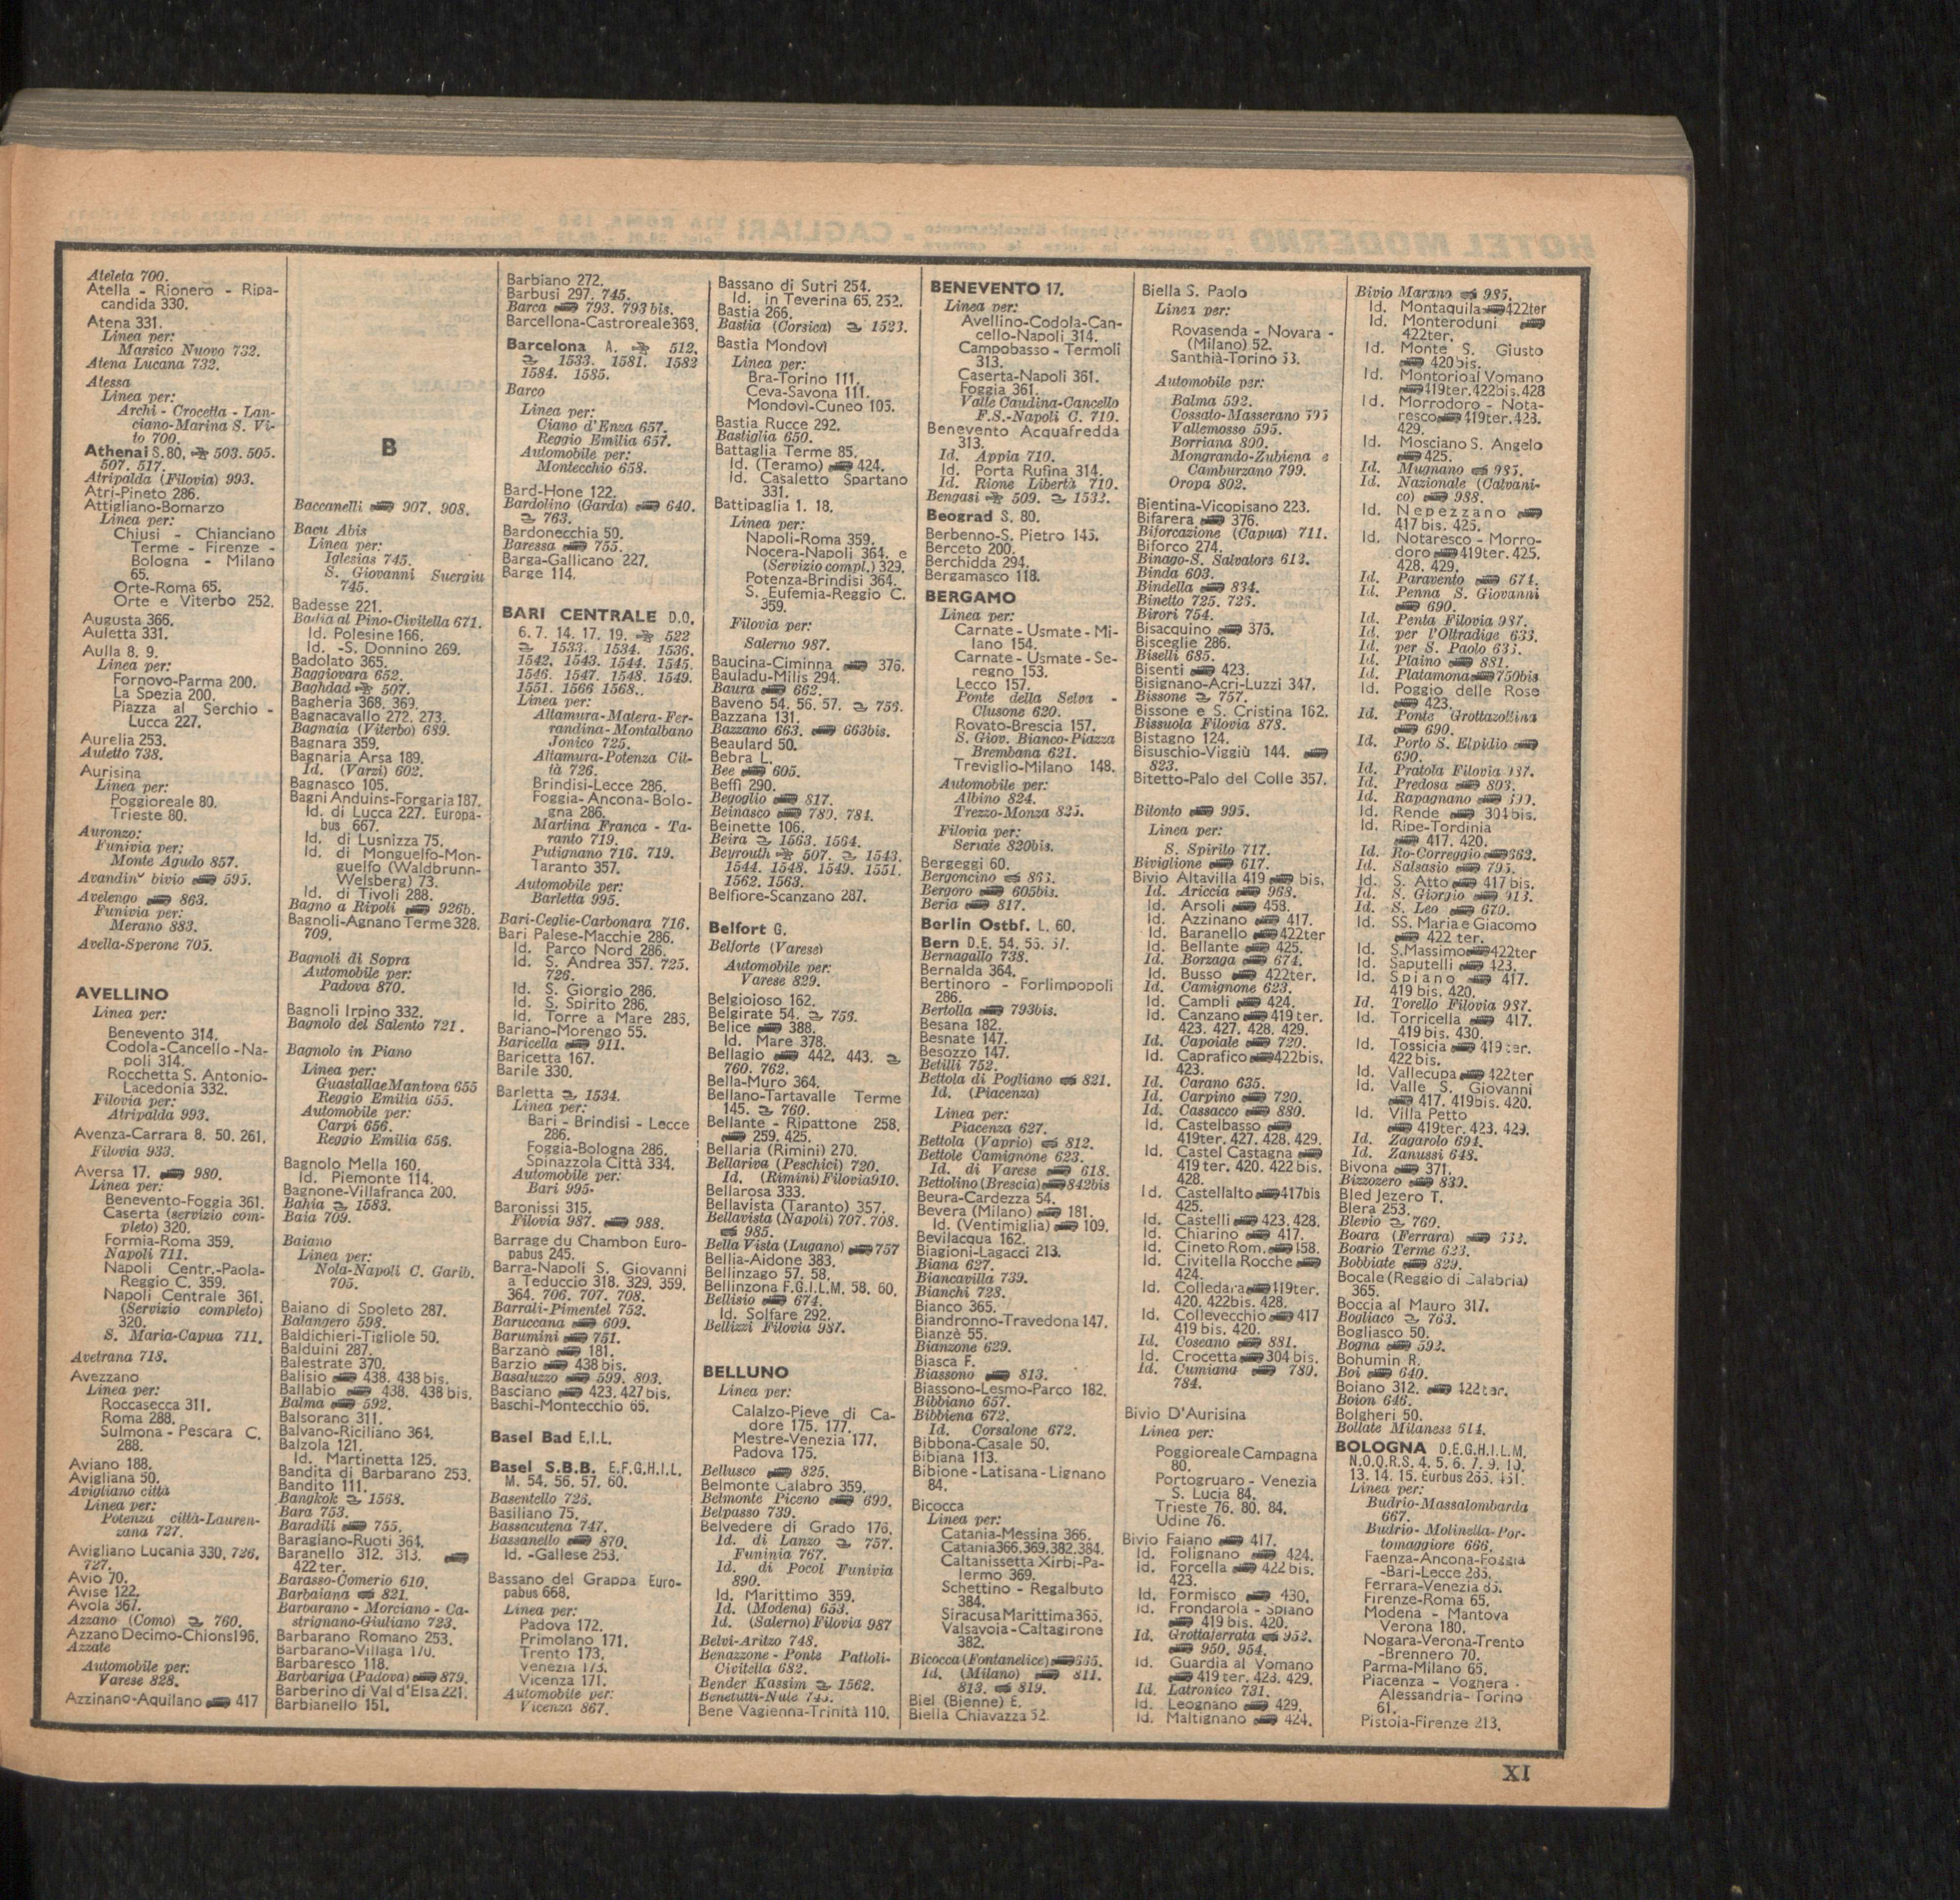 Ateleta 700.
Atella - Rionero - Ripa-
candida 330.
Atena 331.
Linea per:
Marsico Nuovo 732.
Atena Lucana 732.
Atessa
Linea per:
Archi - Crocetta - Lan-
ciano-Marina S. Vi-
to 700.
Athenai S. 80. 503. 505.
507. 517.
Atripalda (Filovia) 993.
Atri-Pineto 286.
Attigliano-Bomarzo
Linea per:
Chiusi - Chianciano
Terme - Firenze -
Bologna - Milano
65.
Orte-Roma 65.
Orte e Viterbo 252.
Augusta 366.
Auletta 331.
Aulla 8. 9.
Linea per:
Fornovo-Parma 200.
La Spezia 200.
Piazza al Serchio -
Lucca 227.
Aurelia 253.
Autetto 738.
Aurisina
Linea per:
Poggioreale 80.
Trieste 80.
Auronzo:
Funivia per:
Monte Agudo 857.
bivio 595.
Avelengo 863.
Funivia per:
Merano 883.
Avella-Sperone 705.
AVELLINO
Linea per:
Benevento 314.
Codola-Cancello-Na-
poli 314.
Rocchetta S. Antonio-
Lacedonia 332.
Filovia per:
Atripalda 993.
Avenza-Carrara 8. 50. 261.
Filovia 933.
Aversa 17. 980.
Linea per:
Benevento-Foggia 361.
Caserta (servizio com-
pleto) 320.
Formia-Roma 359.
Napoli 711.
Napoli Centr.-Paola-
Reggio C. 359.
Napoli Centrale 361.
(Servizio completo)
320.
S. Maria-Capua 711.
Avetrana 718.
Avezzano
Linea per:
Roccasecca 311.
Roma 288.
Sulmona - Pescara C.
288.
Aviano 188.
Avigliana 50.
Avigliano città
Linea per:
Potenza città-Lauren-
zana 727.
Avigliano Lucania 330. 726.
727.
Avio 70.
Avise 122.
Avola 367.
Azzano (Como) 760.
Azzano Decimo-Chions 196.
Azzate
Automobile per:
Varese 828.
Azzinano-Aquilano 417
B
Baccanelli 907. 908.
Bacu Abis
Linea per:
Iglesias 745.
S. Giovanni Suergiu
745.
Badesse 221.
Badia al Pino-Civitella 671.
Id. Polesine 166.
Id. -S. Donnino 269.
Badolato 365.
Baggiovara 652.
Baghdad 507.
Bagheria 368. 369.
Bagnacavallo 272. 273.
Bagnaia (Viterbo) 689.
Bagnara 359.
Bagnaria Arsa 189.
Id. (Varzi) 602.
Bagnasco 105.
Bagni Anduins-Forgaria 187.
Id. di Lucca 227. Europa-
bus 667.
Id. di Lusnizza 75.
Id. di Monguelfo-Mon-
guelfo (Waldbrunn-
Welsberg) 73.
Id. di Tivoli 288.
Bagno a Ripoli 926b.
Bagnoli-Agnano Terme 328.
709.
Bagnoli di Sopra
Automobile per:
Padova 870.
Bagnoli Irpino 332.
Bagnolo del Salento 721.
Bagnolo in Piano
Linea per:
Guastalla e Mantova 655
Reggio Emilia 655.
Automobile per:
Carpi 656.
Reggio Emilia 656.
Bagnolo Mella 160.
Id. Piemonte 114.
Bagnone-Villafranca 200.
Bahia 1583.
Baia 709.
Baiano
Linea per:
Nola-Napoli C. Garib.
705.
Baiano di Spoleto 287.
Balangero 598.
Baldichieri-Tigliole 50.
Balduini 287.
Balestrate 370.
Balisio 438. 438 bis.
Ballabio 438. 438 bis.
Balma 592.
Balsorano 311.
Balvano-Riciliano 364.
Balzola 121.
Id. Martinetta 125.
Bandita di Barbarano 253.
Bandito 111.
Bangkok 1568.
Bara 753.
Baradili 755.
Baragiano-Ruoti 364.
Baranello 312. 313.
422 ter.
Barasso-Comerio 610.
Barbaiana 821.
Barbarano - Morciano - Ca-
strignano-Giuliano 723.
Barbarano Romano 253.
Barbarano-Villaga 170.
Barbaresco 118.
Barbariga (Padova) 879.
Barberino di Val d'Elsa 221.
Barbianello 151.
Barbiano 272.
Barbusi 297. 745.
Barca 793. 793 bis.
Barcellona-Castroreale 368.
Barcelona A. 512.
1533. 1581. 1582
1584. 1585.
Barco
Linea per:
Ciano d'Enza 657.
Reggio Emilia 657.
Automobile per:
Montecchio 658.
Bard-Hone 122.
Bardolino (Garda) 640.
763.
Bardonecchia 50.
Baressa 755.
Barga-Gallicano 227.
Barge 114.
BARI CENTRALE D.O.
6. 7. 14. 17. 19. 522
1533. 1534. 1536.
1542. 1543. 1544. 1545.
1546. 1547. 1548. 1549.
1551. 1566 1568..
Linea per:
Altamura-Matera-Fer-
randina-Montalbano
Jonico 725.
Altamura-Potenza Cit-
tà 726.
Brindisi-Lecce 286.
Foggia-Ancona-Bolo-
gna 286.
Martina Franca - Ta-
ranto 719.
Putignano 716. 719.
Taranto 357.
Automobile per:
Barletta 995.
Bari-Ceglie-Carbonara 716.
Bari Palese-Macchie 286.
Id. Parco Nord 286.
Id. S. Andrea 357. 725.
726.
Id. S. Giorgio 286.
Id. S. Spirito 286.
Id. Torre a Mare 286.
Bariano-Morengo 55.
Baricella 911.
Baricetta 167.
Barile 330.
Barletta 1534.
Linea per:
Bari - Brindisi - Lecce
286.
Foggia-Bologna 286.
Spinazzola Città 334.
Automobile per:
Bari 995.
Baronissi 315.
Filovia 987. 988.
Barrage du Chambon Euro-
pabus 245.
Barra-Napoli S. Giovanni
a Teduccio 318. 329. 359.
364. 706. 707. 708.
Barrali-Pimentel 752.
Baruccana 609.
Barumini 751.
Barzanò 181.
Barzio 438 bis.
Basaluzzo 599. 803.
Basciano 423. 427 bis.
Baschi-Montecchio 65.
Basel Bad E.I.L.
Basel S.B.B. E.F.G.H.I.L.
M. 54. 56. 57. 60.
Basentello 726.
Basiliano 75.
Bassacutena 747.
Bassanello 870.
Id. -Gallese 253.
Bassano del Grappa Euro-
pabus 668.
Linea per:
Padova 172.
Primolano 171.
Trento 173.
Venezia 173.
Vicenza 171.
Automobile per:
Vicenza 867.
Bassano di Sutri 254.
Id. in Teverina 65. 252.
Bastia 266.
Bastia (Corsica) 1523.
Bastia Mondovì
Linea per:
Bra-Torino 111.
Ceva-Savona 111.
Mondovì-Cuneo 105.
Bastia Rucce 292.
Bastiglia 650.
Battaglia Terme 85.
Id. (Teramo) 424.
Id. Casaletto Spartano
331.
Battipaglia 1. 18.
Linea per:
Napoli-Roma 359.
Nocera-Napoli 364. e
(Servizio compl.) 329.
Potenza-Brindisi 364.
S. Eufemia-Reggio C.
359.
Filovia per:
Salerno 987.
Baucina-Ciminna 376.
Bauladu-Milis 294.
Baura 662.
Baveno 54. 56. 57. 756.
Bazzana 131.
Bazzano 663. 663bis.
Beaulard 50.
Bebra L.
Bee 605.
Beffi 290.
Begoglio 817.
Beinasco 780. 784.
Beinette 106.
Beira 1563. 1564.
Beyrouth 507. 1543.
1544. 1548. 1549. 1551.
1562. 1563.
Belfiore-Scanzano 287.
Belfort G.
Belforte (Varese)
Automobile per:
Varese 829.
Belgioioso 162.
Belgirate 54. 756.
Belice 388.
Id. Mare 378.
Bellagio 442. 443.
760. 762.
Bella-Muro 364.
Bellano-Tartavalle Terme
145. 760.
Bellante - Ripattone 258.
259. 425.
Bellaria (Rimini) 270.
Bellariva (Peschici) 720.
Id. (Rimini) Filovia 910.
Bellarosa 333.
Bellavista (Taranto) 357.
Bellavista (Napoli) 707. 708.
985.
Bella Vista (Lugano) 757
Bellia-Aidone 383.
Bellinzago 57. 58.
Bellinzona F.G.I.L.M. 58. 60.
Bellisio 674.
Id. Solfare 292.
Bellizzi Filovia 987.
BELLUNO
Linea per:
Calalzo-Pieve di Ca-
dore 175. 177.
Mestre-Venezia 177.
Padova 175.
Bellusco 825.
Belmonte Calabro 359.
Belmonte Piceno 690.
Belpasso 739.
Belvedere di Grado 176.
Id. di Lanzo 757.
Funinia 767.
Id. di Pocol Funivia
890.
Id. Marittimo 359.
Id. (Modena) 653.
Id. (Salerno) Filovia 987
Belvì-Aritzo 748.
Benazzone - Ponte Pattoli-
Civitella 682.
Bender Kassim 1562.
Benetutti-Nule 745.
Bene Vagienna-Trinità 110.
BENEVENTO 17.
Linea per:
Avellino-Codola-Can-
cello-Napoli 314.
Campobasso - Termoli
313.
Caserta-Napoli 361.
Foggia 361.
Valle Caudina-Cancello
F.S.-Napoli C. 710.
Benevento Acquafredda
313.
Id. Appia 710.
Id. Porta Rufina 314.
Id. Rione Libertà 710.
Bengasi 509. 1532.
Beograd S. 80.
Berbenno-S. Pietro 145.
Berceto 200.
Berchidda 294.
Bergamasco 118.
BERGAMO
Linea per:
Carnate - Usmate - Mi-
lano 154.
Carnate - Usmate - Se-
regno 153.
Lecco 157.
Ponte della Selva -
Clusone 620.
Rovato-Brescia 157.
S. Giov. Bianco-Piazza
Brembana 621.
Treviglio-Milano 148.
Automobile per:
Albino 824.
Trezzo-Monza 825.
Filovia per:
Seriate 820bis.
Bergeggi 60.
Bergoncino 865.
Bergoro 605bis.
Beria 817.
Berlin Ostbf. L. 60.
Bern D.E. 54. 55. 57.
Bernagallo 738.
Bernalda 364.
Bertinoro - Forlimpopoli
286.
Bertolla 793bis.
Besana 182.
Besnate 147.
Besozzo 147.
Betilli 752.
Bettola di Pogliano 821.
Id. (Piacenza)
Linea per:
Piacenza 627.
Bettola (Vaprio) 812.
Bettole Camignone 623.
Id. di Varese 618.
Bettolino (Brescia) 842bis
Beura-Cardezza 54.
Bevera (Milano) 181.
Id. (Ventimiglia) 109.
Bevilacqua 162.
Biagioni-Lagacci 213.
Biana 627.
Biancavilla 739.
Bianchi 728.
Bianco 365.
Biandronno-Travedona 147.
Bianzè 55.
Bianzone 629.
Biasca F.
Biassono 813.
Biassono-Lesmo-Parco 182.
Bibbiano 657.
Bibbiena 672.
Id. Corsalone 672.
Bibbona-Casale 50.
Bibiana 113.
Bibione - Latisana - Lignano
84.
Bicocca
Linea per:
Catania-Messina 366.
Catania 366. 369. 382. 384.
Caltanissetta Xirbi-Pa-
lermo 369.
Schettino - Regalbuto
384.
Siracusa Marittima 366.
Valsavoia-Caltagirone
382.
Bicocca (Fontanelice) 665.
Id. (Milano) 811.
813. 819.
Biel (Bienne) E.
Biella Chiavazza 52.
Biella S. Paolo
Linea per:
Rovasenda - Novara -
(Milano) 52.
Santhià-Torino 53.
Automobile per:
Balma 592.
Cossato-Masserano 595
Vallemosso 595.
Borriana 800.
Mongrando-Zubiena e
Camburzano 799.
Oropa 802.
Bientina-Vicopisano 223.
Bifarera 376.
Biforcazione (Capua) 711.
Biforco 274.
Binago-S. Salvatore 612.
Binda 603.
Bindella 834.
Binetto 725. 726.
Birori 754.
Bisacquino 376.
Bisceglie 286.
Biselli 685.
Bisenti 423.
Bisignano-Acri-Luzzi 347.
Bissone 757.
Bissone e S. Cristina 162.
Bissuola Filovia 878.
Bistagno 124.
Bisuschio-Viggiù 144.
823.
Bitetto-Palo del Colle 357.
Bitonto 995.
Linea per:
S. Spirito 717.
Biviglione 617.
Bivio Altavilla 419 bis.
Id. Ariccia 968.
Id. Arsoli 458.
Id. Azzinano 417.
Id. Baranello 422ter
Id. Bellante 425.
Id. Borzaga 674.
Id. Busso 422ter.
Id. Camignone 623.
Id. Campli 424.
Id. Canzano 419 ter.
423. 427. 428. 429.
Id. Capoiale 720.
Id. Caprafico 422bis.
423.
Id. Carano 635.
Id. Carpino 720.
Id. Cassacco 880.
Id. Castelbasso
419ter. 427. 428. 429.
Id. Castel Castagna
419 ter. 420. 422 bis.
428.
Id. Castellalto 417bis
425.
Id. Castelli 423. 428.
Id. Chiarino 417.
Id. Cineto Rom. 158.
Id. Civitella Rocche
424.
Id. Colledara 419ter.
420. 422bis. 428.
Id. Collevecchio 417
419 bis. 420.
Id. Coseano 881.
Id. Crocetta 304 bis.
Id. Cumiana 780.
784.
Bivio D'Aurisina
Linea per:
Poggioreale Campagna
80.
Portogruaro - Venezia
S. Lucia 84.
Trieste 76. 80. 84.
Udine 76.
Bivio Faiano 417.
Id. Folignano 424.
Id. Forcella 422 bis.
423.
Id. Formisco 430.
Id. Frondarola - Spiano
419 bis. 420.
Id. Grottaferrata 952.
950. 954.
Id. Guardia al Vomano
419 ter. 423. 429.
Id. Latronico 731.
Id. Leognano 429.
Id. Maltignano 424.
Bivio Marano 985.
Id. Montaquila 422ter
Id. Monteroduni
422ter.
Id. Monte S. Giusto
420 bis.
Id. Montorio al Vomano
419ter. 422bis. 428
Id. Morrodoro - Nota-
resco 419ter. 423.
429.
Id. Mosciano S. Angelo
425.
Id. Mugnano 985.
Id. Nazionale (Calvani-
co) 988.
Id. Nepezzano
417 bis. 425.
Id. Notaresco - Morro-
doro 419ter. 425.
428. 429.
Id. Paravento 671.
Id. Penna S. Giovanni
690.
Id. Penta Filovia 987.
Id. per l'Oltradige 633.
Id. per S. Paolo 635.
Id. Plaino 881.
Id. Platamona 750bis
Id. Poggio delle Rose
423.
Id. Ponte Grottazolina
690.
Id. Porto S. Elpidio
690.
Id. Pratola Filovia 987.
Id. Predosa 803.
Id. Rapagnano 690.
Id. Rende 304 bis.
Id. Ripe-Tordinia
417. 420.
Id. Ro-Correggio 662.
Id. Salsasio 795.
Id. S. Atto 417 bis.
Id. S. Giorgio 913.
Id. S. Leo 670.
Id. SS. Maria e Giacomo
422 ter.
Id. S. Massimo 422ter
Id. Saputelli 423.
Id. Spiano 417.
419 bis. 420.
Id. Torello Filovia 987.
Id. Torricella 417.
419 bis. 430.
Id. Tossicia 419 ter.
422 bis.
Id. Vallecupa 422ter
Id. Valle S. Giovanni
417. 419bis. 420.
Id. Villa Petto
419ter. 423. 429.
Id. Zagarolo 694.
Id. Zanussi 648.
Bivona 371.
Bizzozero 839.
Bled Jezero T.
Blera 253.
Blevio 760.
Boara (Ferrara)
Boario Terme 623.
Bobbiate 829.
Bocale (Reggio di Calabria)
365.
Boccia al Mauro 317.
Bogliaco 763.
Bogliasco 50.
Bogna 592.
Bohumin R.
Boi 640.
Boiano 312. 422ter.
Boion 646.
Bolgheri 50.
Bollate Milanese 614.
BOLOGNA D.E.G.H.I.L.M.
N.O.Q.R.S. 4. 5. 6. 7. 9. 10.
13. 14. 15. Eurbus 265. 451.
Linea per:
Budrio-Massalombarda
667.
Budrio-Molinella-Por-
tomaggiore 666.
Faenza-Ancona-Foggia
-Bari-Lecce 286.
Ferrara-Venezia 85.
Firenze-Roma 65.
Modena - Mantova
Verona 180.
Nogara-Verona-Trento
-Brennero 70.
Parma-Milano 65.
Piacenza - Voghera -
Alessandria-Torino
61.
Pistoia-Firenze 213.
XI